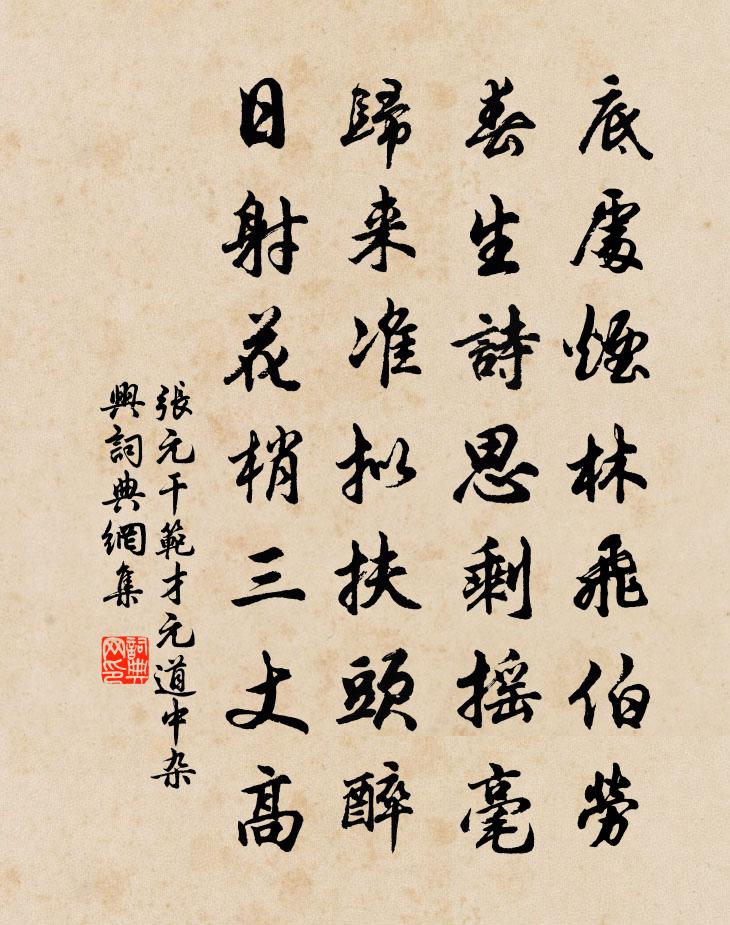 底處煙林飛伯勞
春生詩思剩搖毫
歸来准拟扶頭醉
日射花梢三丈高
張元干範才元道中杂
興詞典網集
詞典
网印